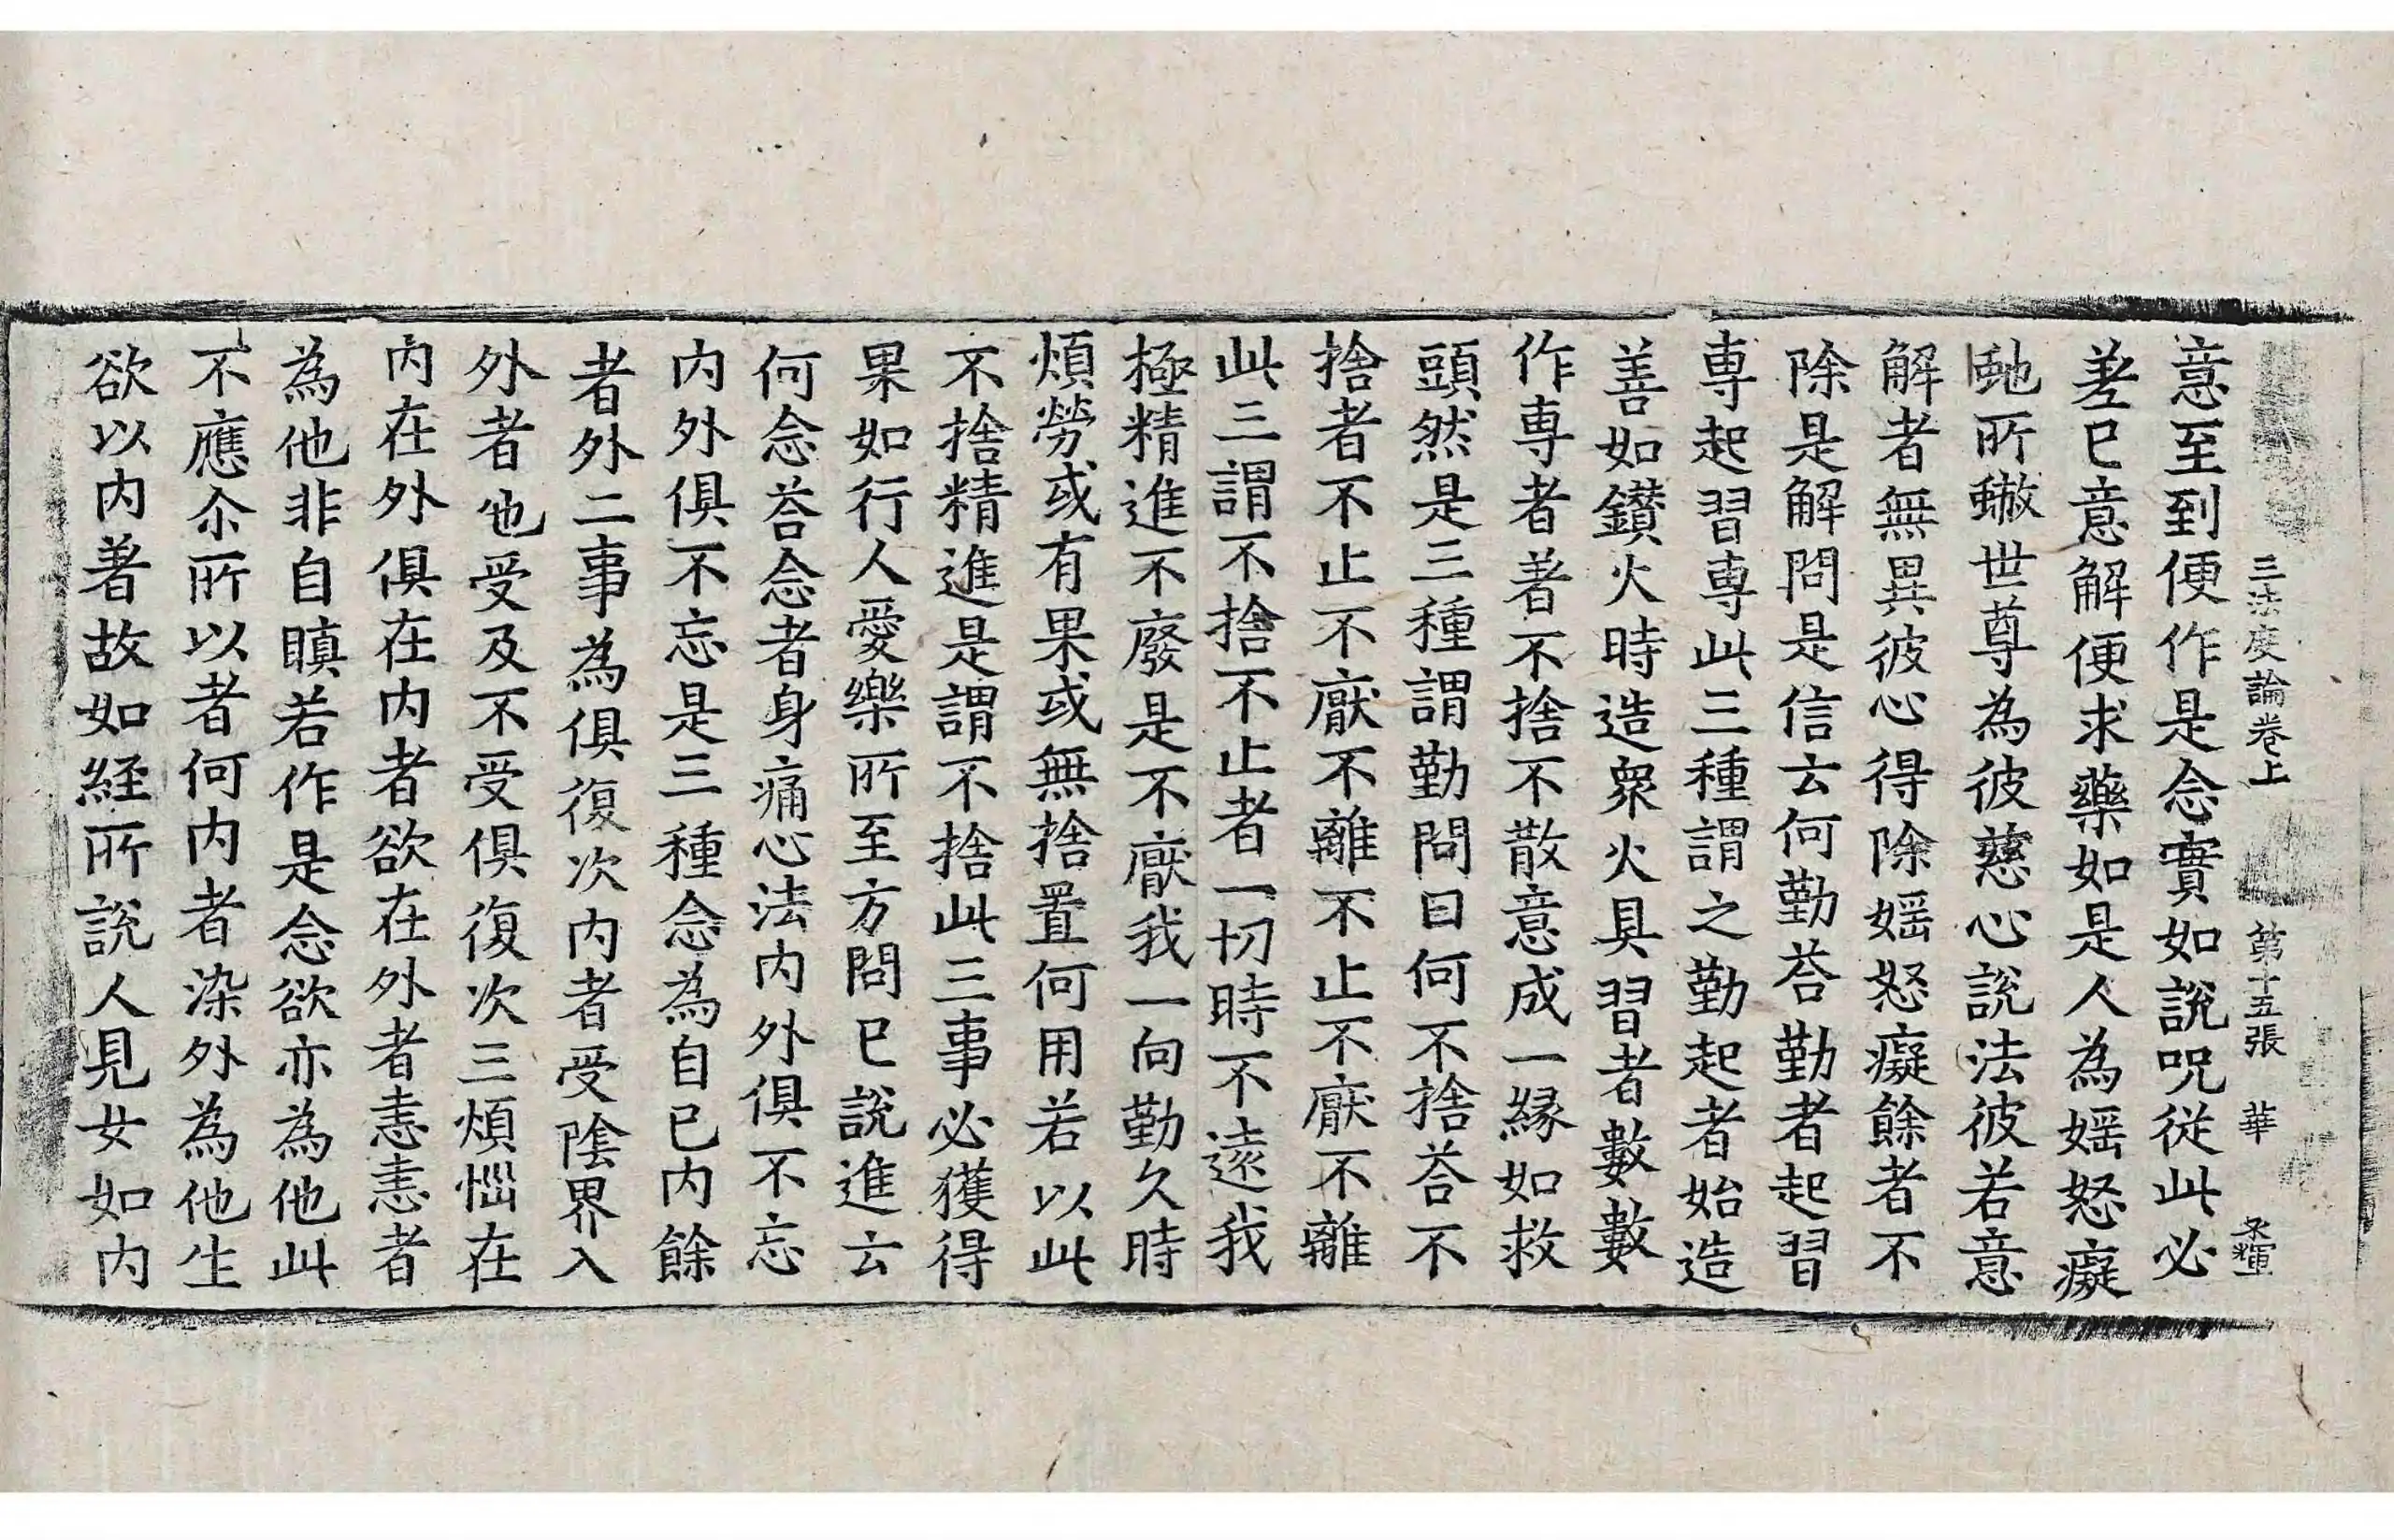 三法度論卷上　第十五張　華
意至到便作是念實如說呪從此必
差已意解便求藥如是人為婬怒癡
虵所螫世尊為彼慈心說法彼若意
解者無異彼心得除婬怒癡餘者不
除是解問是信云何勤荅勤者起習
専起習専此三種謂之勤起者始造
善如鑚火時造衆火具習者數數
作専者著不捨不散意成一縁如救
頭然是三種謂勤問曰何不捨荅不
捨者不止不厭不離不止不厭不離
此三謂不捨不止者一切時不遠我
極精進不廢是不厭我一向勤久時
煩勞或有果或無捨置何用若以此
不捨精進是謂不捨此三事必獲得
果如行人愛樂所至方問已說進云
何念荅念者身痛心法内外俱不忘
内外俱不忘是三種念為自已内餘
者外二事為俱復次内者受陰界入
外者也受及不受俱復次三煩惱在
内在外俱在内者欲在外者恚恚者
為他非自瞋若作是念欲亦為他此
不應尒所以者何内者染外為他生
欲以内著故如経所說人見女如内